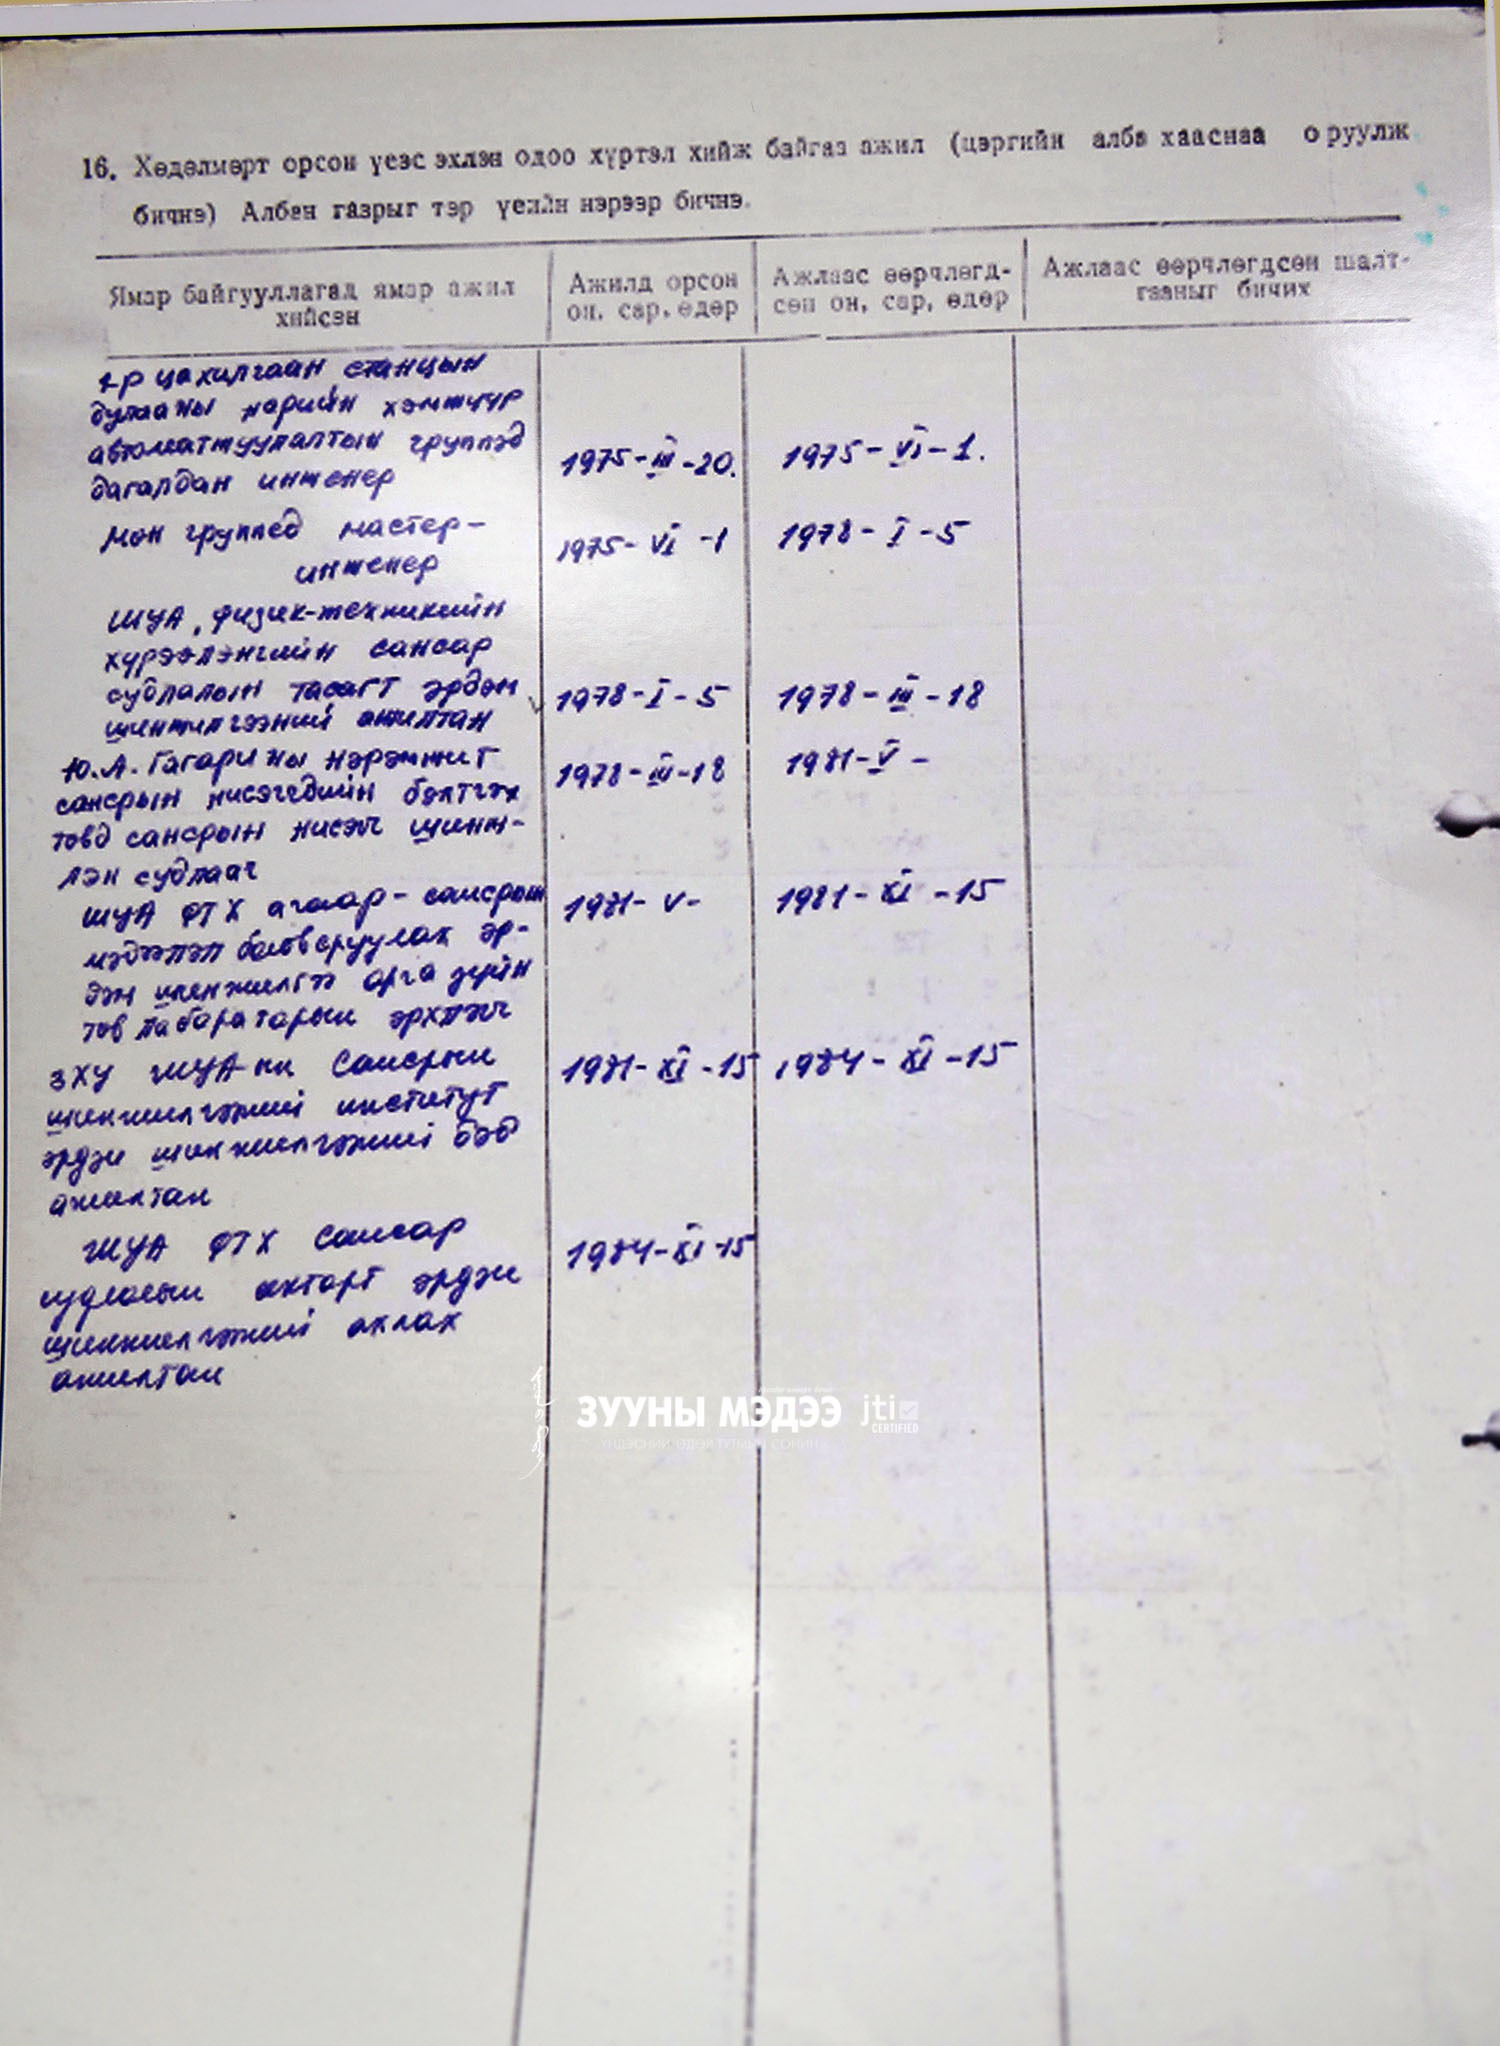 16. Хөдөлмөрт орсон үеэс эхлэн одоо хүртэл хийж байгаа ажил (цэргийн алба хааснаа оруулж
бичнэ) Албан газрыг тэр үеийн нэрээр бичнэ.
Ямар байгууллагад ямар ажил
хийсэн
Ажилд орсон
он, сар, өдөр
Ажлаас өөрчлөгд-
сөн он, сар, өдөр
Ажлаас өөрчлөгдсөн шалт-
гааныг бичих
цахилгаан станцын
дулааны нарийн хэмжүүр
автоматтуулалтын группэд
дагалдан инженер
1975-III-20.
1975-VI-1.
Мөн группед мастер-
инженер
1975-VI-1
1978-I-5
ШУА, физик-техникийн
хүрээлэнгийн сансар
судлалын тасагт эрдэм
шинжилгээний ажилтан
1978-I-5
1978-III-18
Ю.А. Гагарины нэрэмжит
сансрын нисэгчдийн бэлтгэх
төвд сансрын нисэгч шинж-
лэн судлаач
1978-III-18
1981-V-
ШУА ФТХ агаар-сансрын
мэдээлэл боловсруулах эр-
дэм шинжилгээ арга зүйн
төв лабораторын эрхлэгч
1981-V-
1981-XI-15
ЗХУ ШУА-ин Сансрын
шинжилгээний институт
эрдэм шинжилгээний дэд
ажилтан
1981-XI-15
1984-XI-15
ШУА ФТХ Сансар
судлалын секторт эрдэм
шинжилгээний ахлах
ажилтан
1984-XI-15
ЗУУНЫ МЭДЭЭ
jti
CERTIFIED
ҮНДЭСНИЙ ӨДӨР ТУТМЫН СОНИН